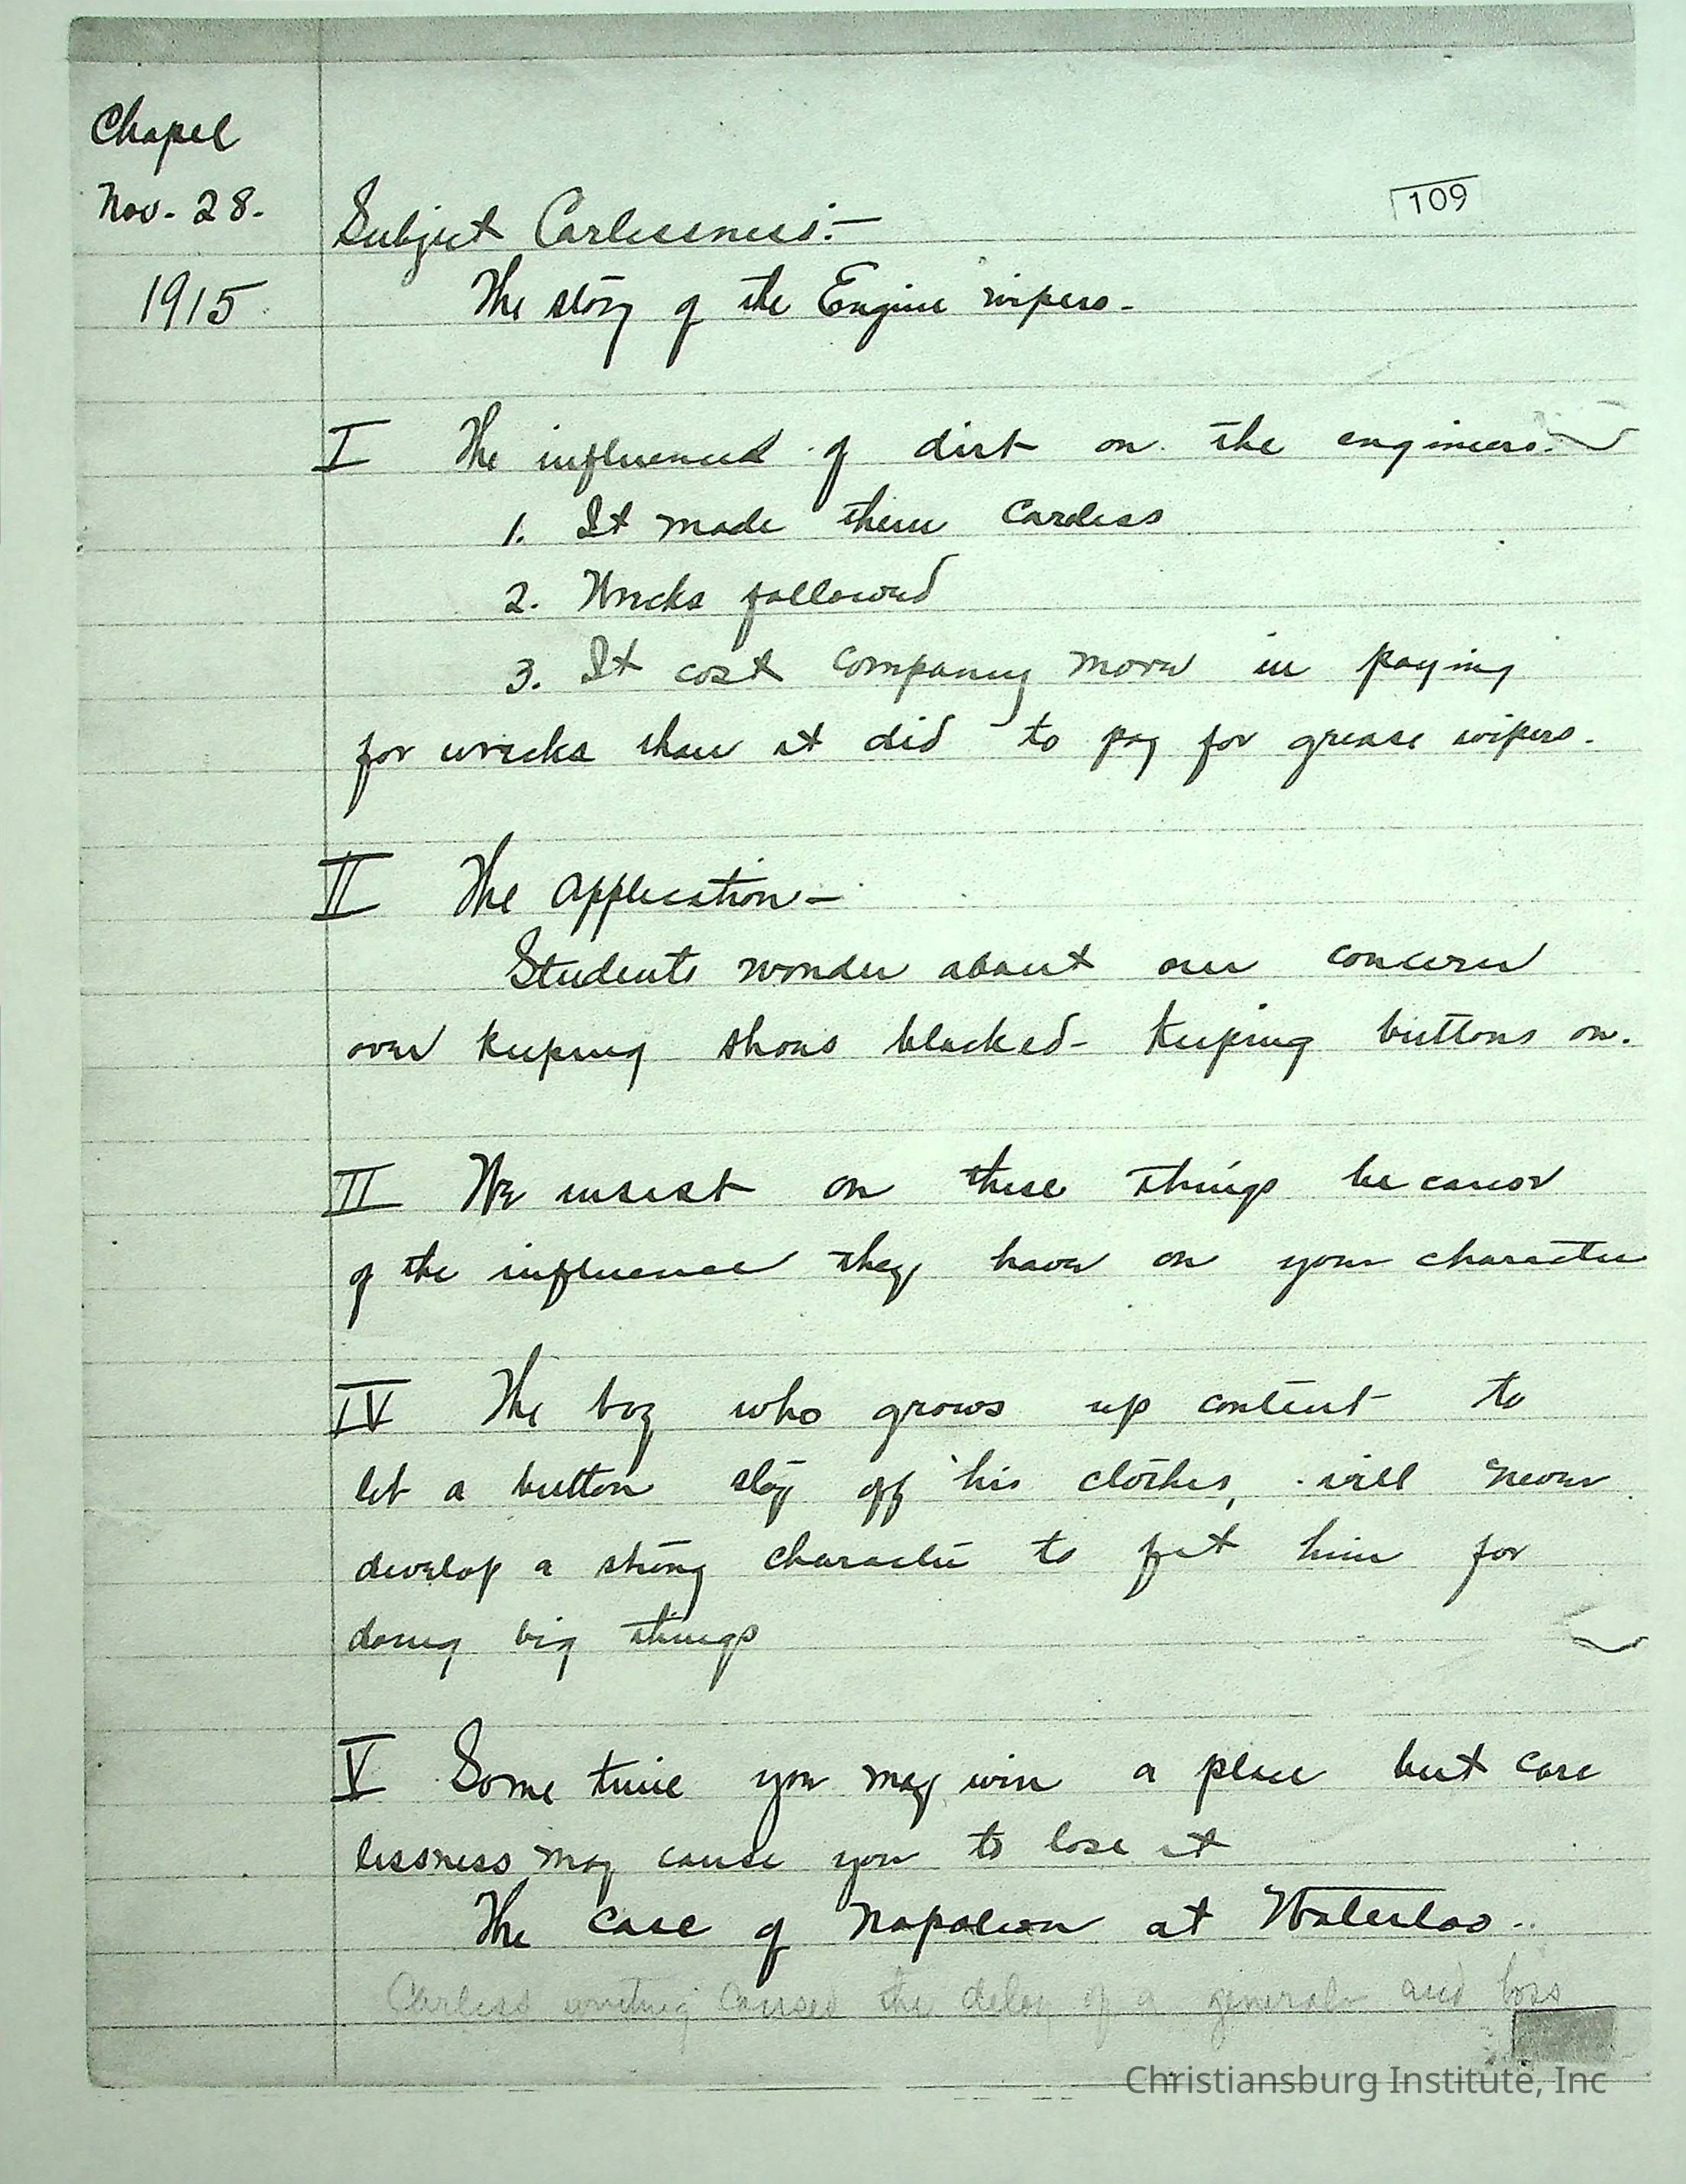 Chapel
Nov. 28.
1915
109
Subject Carlessness:—
The story of the Engine wipers.
I The influence of dirt on the engineers.
1. It made them Careless
2. Wrecks followed
3. It cost Company more in paying
for wrecks than it did to pay for grease wipers.
II The Application—
Students wonder about our concern
over keeping shoes blacked— keeping buttons on.
II We insist on these things because
of the influence they have on your character
IV The boy who grows up content to
let a button stay off his clothes, will never
develop a strong character to fit him for
doing big things
V Some time you may win a place but care
lessness may cause you to lose it
The case of Napoleon at Waterloo..
Carless writing caused the delay of a general and loss
Christiansburg Institute, Inc